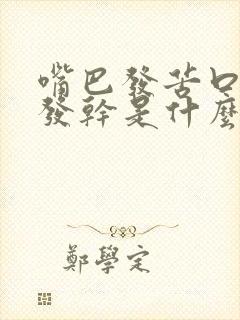 嘴巴發苦口
發幹是什麼
鄭學定